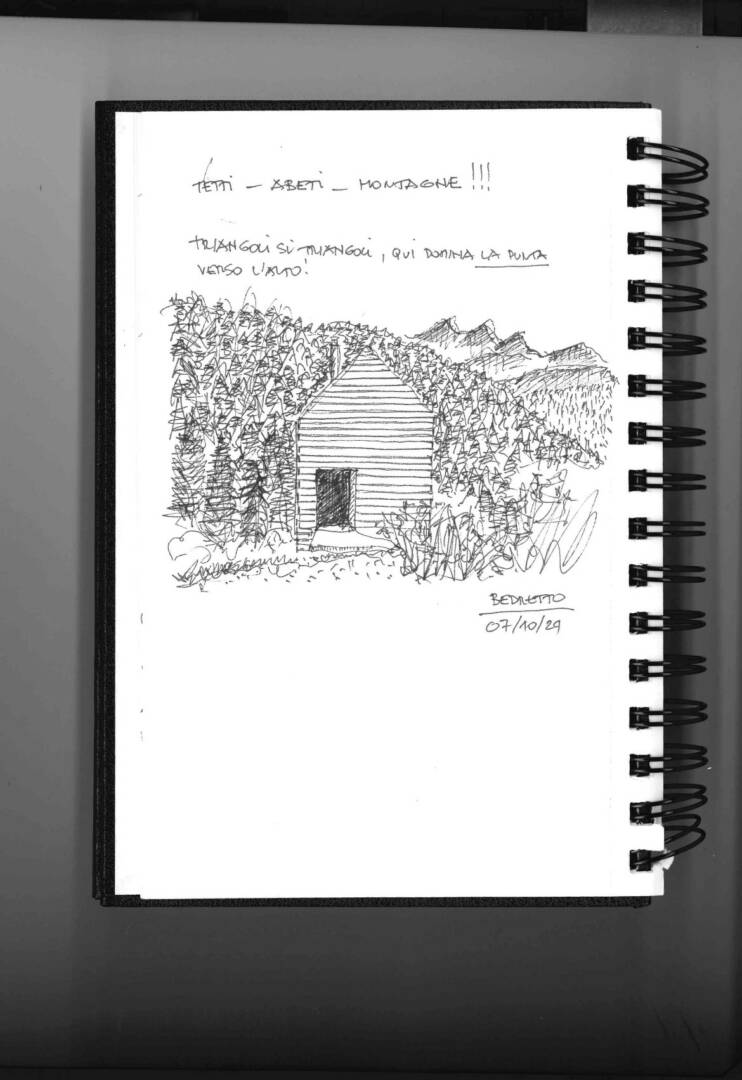 TETTI - ABETI - MONTAGNE !!!
TRIANGOLI SU TRIANGOLI, QUI DOMINA LA PUNTA
VERSO L'ALTO!
BEDRETTO
07/10/21